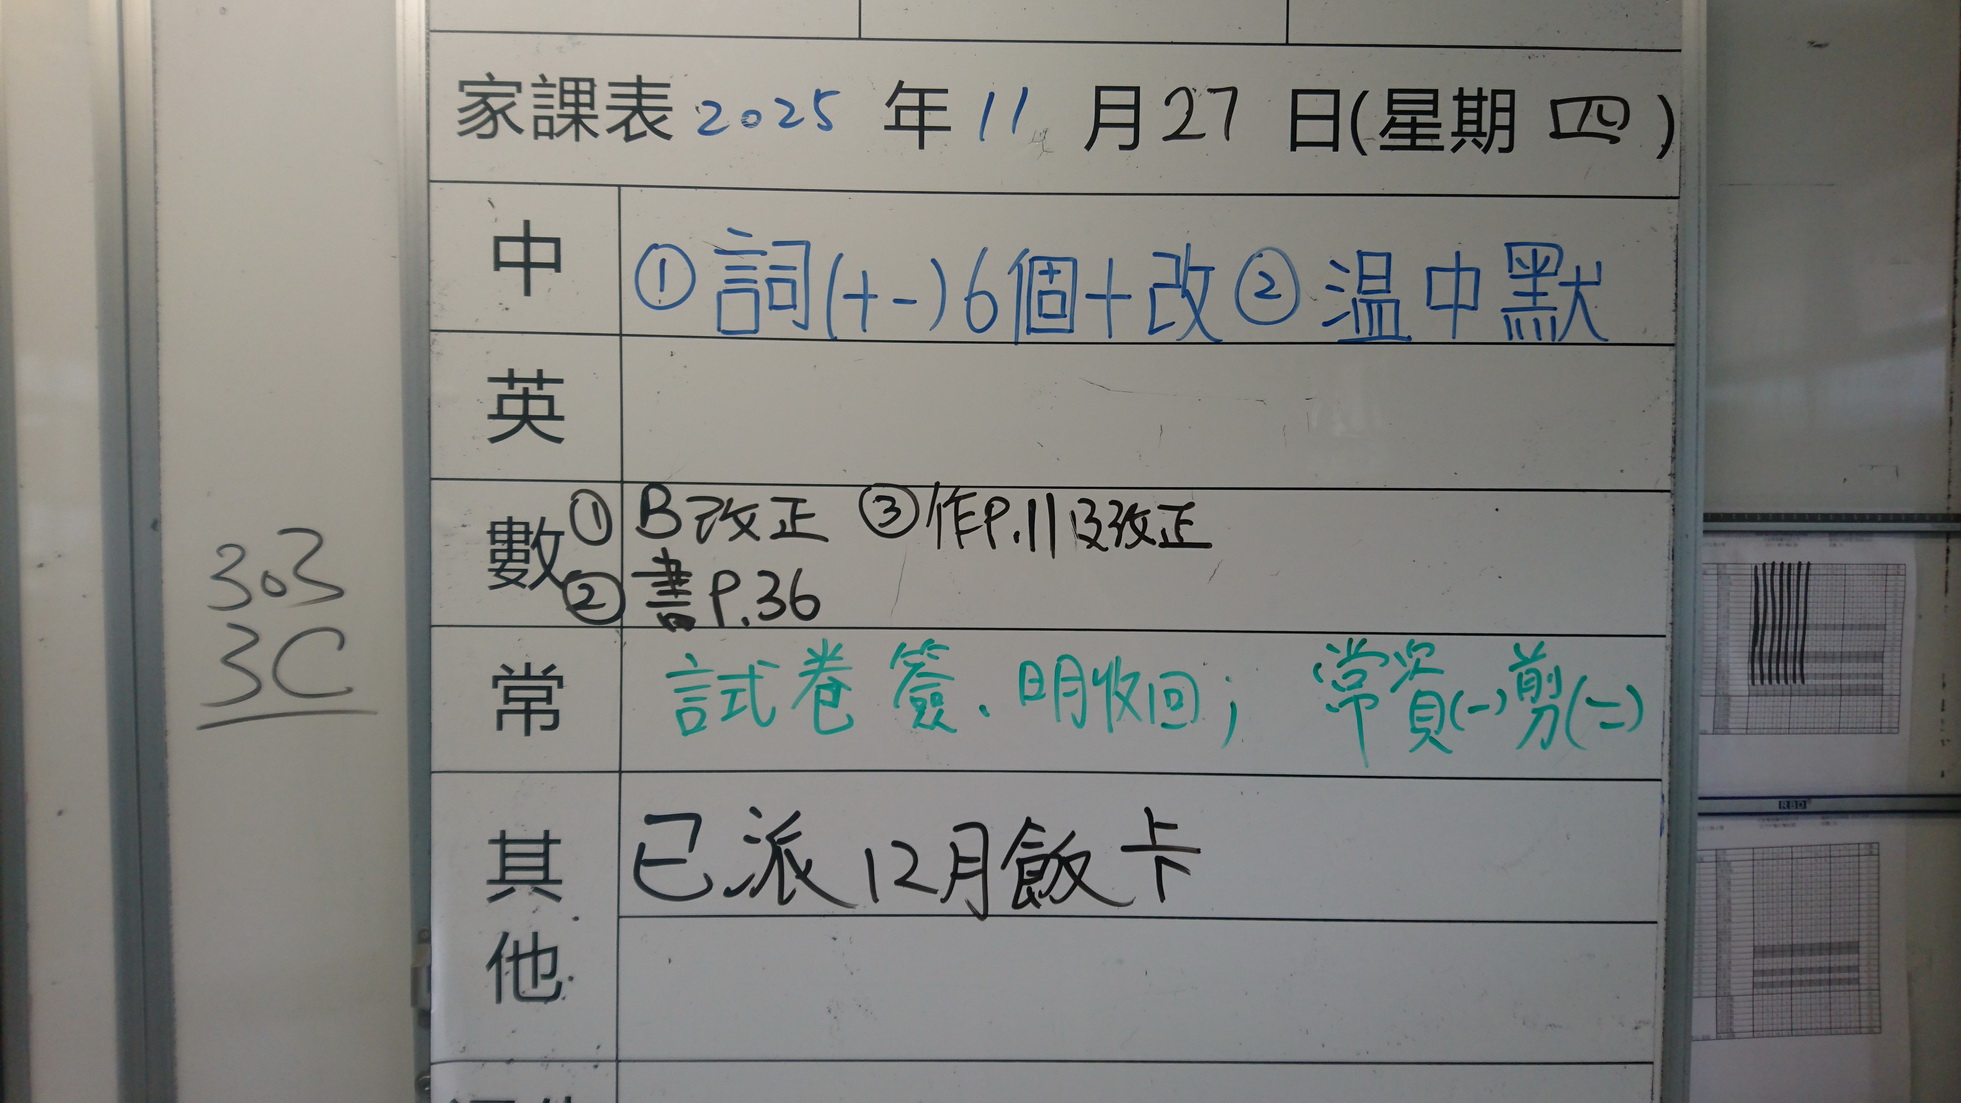 303
3C
家課表 2025 年 11 月 27 日(星期 四)
中 ①詞(十一)6個+改 ②温中默
英
數 ①B改正 ③作P.11及改正
②書P.36
常 試卷簽、明收回; 常資(一)剪(二)
其他 已派12月飯卡
RBD